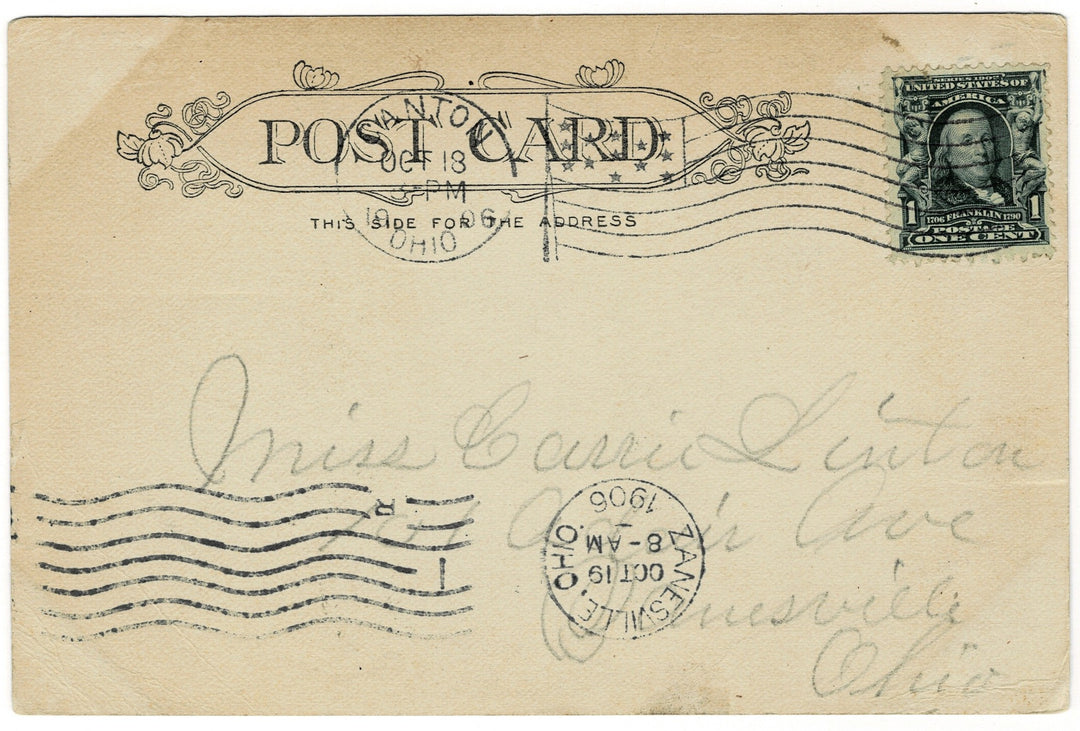 POST CARD.
THIS SIDE FOR THE ADDRESS
OCT 18
-PM
1906
OHIO
SERIES 1902
UNITED STATES OF
AMERICA
1 1706 FRANKLIN 1790 1
POSTAGE
ONE CENT
Miss Carrie Linton
Adair Ave
Zanesville
Ohio
ZANESVILLE, OHIO.
OCT 19
8-AM
1906
R